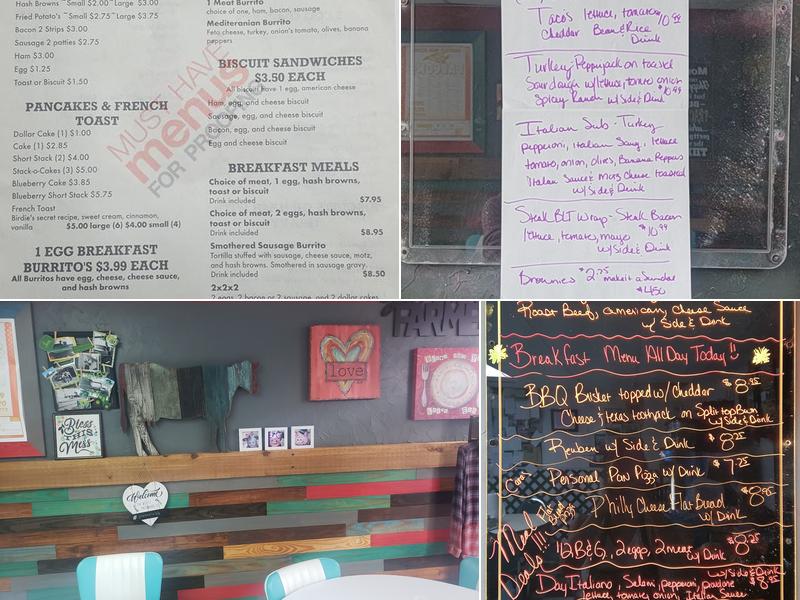 Hash Browns ~Small $2.00~Large $3.00
Fried Potato's ~Small $2.75~Large $3.75
Bacon 2 Strips $3.00
Sausage 2 patties $2.75
Ham $3.00
Egg $1.25
Toast or Biscuit $1.50
PANCAKES & FRENCH
TOAST
Dollar Cake (1) $1.00
Cake (1) $2.85
Short Stack (2) $4.00
Stack-o-Cakes (3) $5.00
Blueberry Cake $3.85
Blueberry Short Stack $5.75
French Toast
Birdie's secret recipe, sweet cream, cinnamon,
vanilla $5.00 large (6) $4.00 small (4)
1 EGG BREAKFAST
BURRITO'S $3.99 EACH
All Burritos have egg, cheese, cheese sauce,
and hash browns
1 Meat Burrito
choice of one, ham, bacon, sausage
Mediteranian Burrito
Feta cheese, turkey, onion's tomato, olives, banana
peppers
BISCUIT SANDWICHES
$3.50 EACH
All biscuits have 1 egg, american cheese
Ham, egg, and cheese biscuit
Sausage, egg, and cheese biscuit
Bacon, egg, and cheese biscuit
Egg and cheese biscuit
BREAKFAST MEALS
Choice of meat, 1 egg, hash browns,
toast or biscuit
Drink included $7.95
Choice of meat, 2 eggs, hash browns,
toast or biscuit
Drink incluided $8.95
Smothered Sausage Burrito
Tortilla stuffed with sausage, cheese sauce, motz,
and hash browns. Smothered in sausage gravy.
Drink included $8.50
2x2x2
2 eggs, 2 bacon or 2 sausage, and 2 dollar cakes
MUST HAVE
menus
FOR PRO
Tacos lettuce, tomatoes, 10.99
Cheddar Bean & Rice
Drink
Turkey Pepperjack on toasted
Sourdough w/lettuce, tomato onion
Spicy Ranch w/Side & Drink $10.99
Italian Sub - Turkey
pepperoni, italian Saus, lettuce
tomato, onion, olives, Banana Peppers
italian Sauce & mozz cheese toasted
w/Side & Drink
Steak BLT Wrap - Steak Bacon
lettuce, tomatoes, mayo $10.99
w/Side & Drink
Brownies $2.75 make it a Sundae
$4.50
FARM
love
Bless
THIS
Mess
Welcome
Roast Beef, american, Cheese Sauce
w/ Side & Drink
Breakfast Menu All Day Today!!
BBQ Brisket topped w/ Cheddar $8.95
Cheese & texas toothpick on Split top Bun
w/Side & Drink
Reuben w/ Side & Drink $8.25
Personal Pan Pizza w/ Drink $7.25
Philly Cheese Flat Bread $8.95
w/ Drink
Meal
Deals!!!
1/2 B&G, 2 eggs, 2 meat w/ Drink $8.25
w/Side & Drink
Day Italiano, Salami, pepperoni, $8.95
lettuce, tomato, onion, Italian Sauce